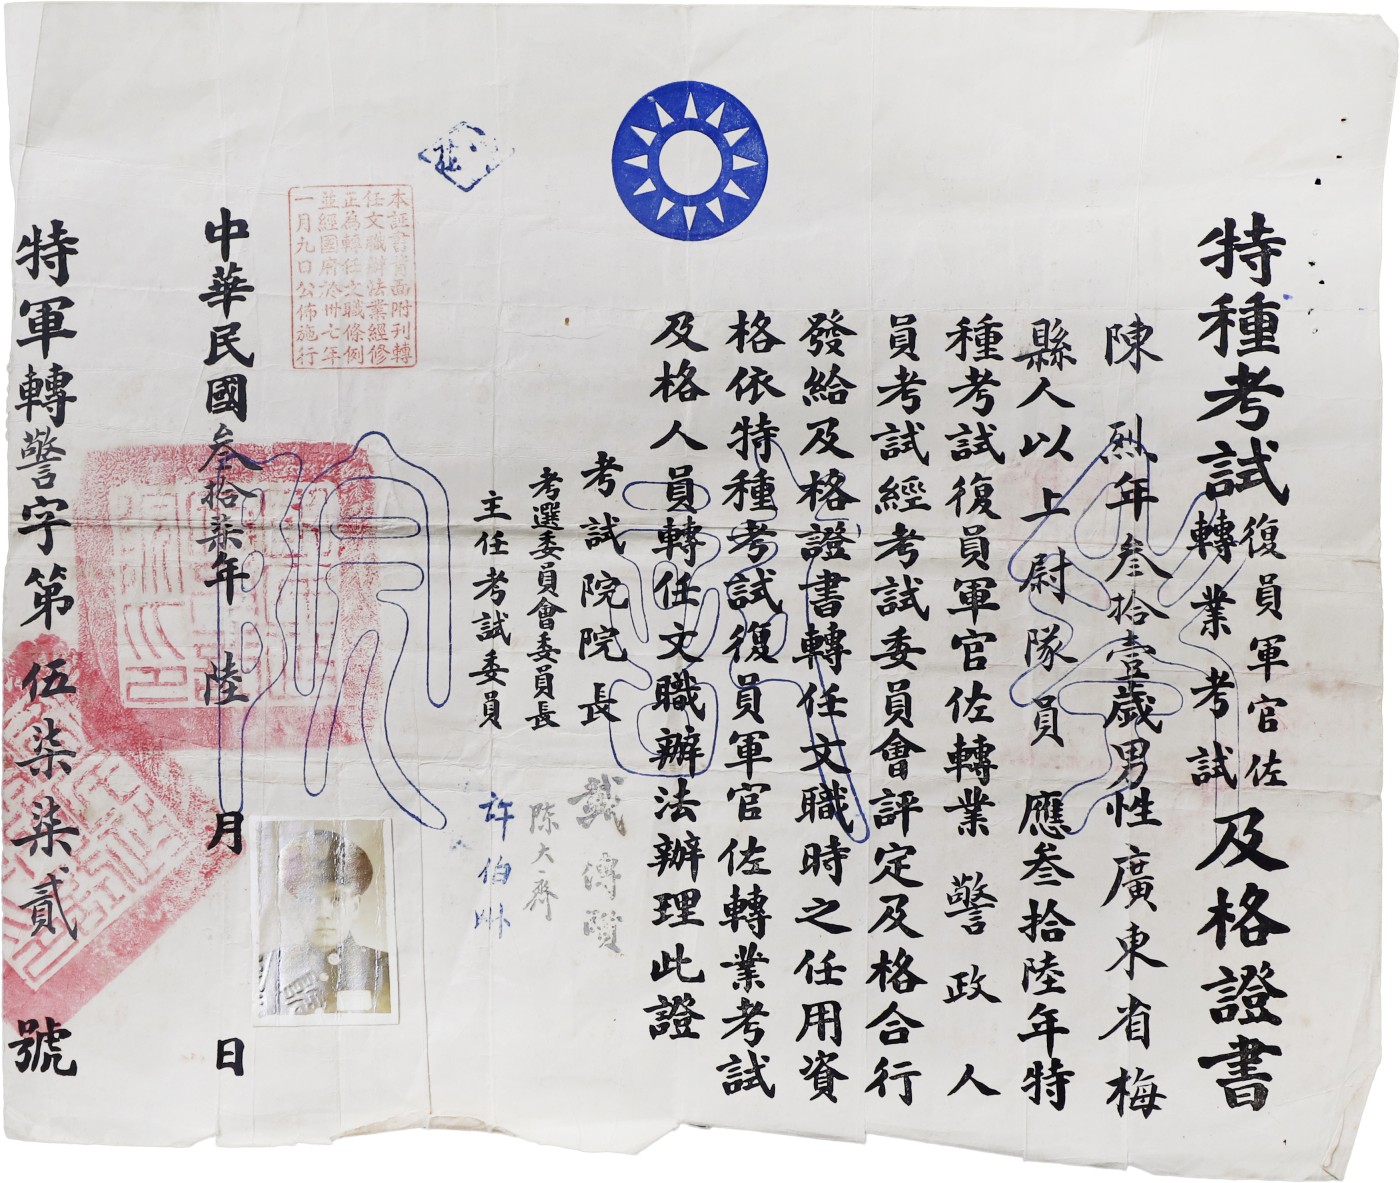 特種考試復員軍官佐轉業考試及格證書
陳烈年叁拾壹歲男性廣東省梅
縣人以上尉隊員應叁拾陸年特
種考試復員軍官佐轉業警政人
員考試經考試委員會評定及格合行
發給及格證書轉任文職時之任用資
格依特種考試復員軍官佐轉業考試
及格人員轉任文職辦法辦理此證
考試院院長戴傳賢
考選委員會委員長陳大齊
主任考試委員許伯
本証書背面附刊轉
任文職辦法業經修
正為轉任文職條例
並經國府於卅七年
一月九日公佈施行
中華民國叁拾柒年陸月日
特軍轉警字第伍柒柒貳號